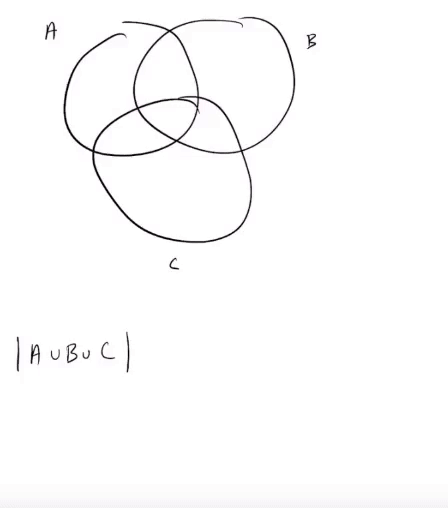 A
B
C
|A∪B∪C|